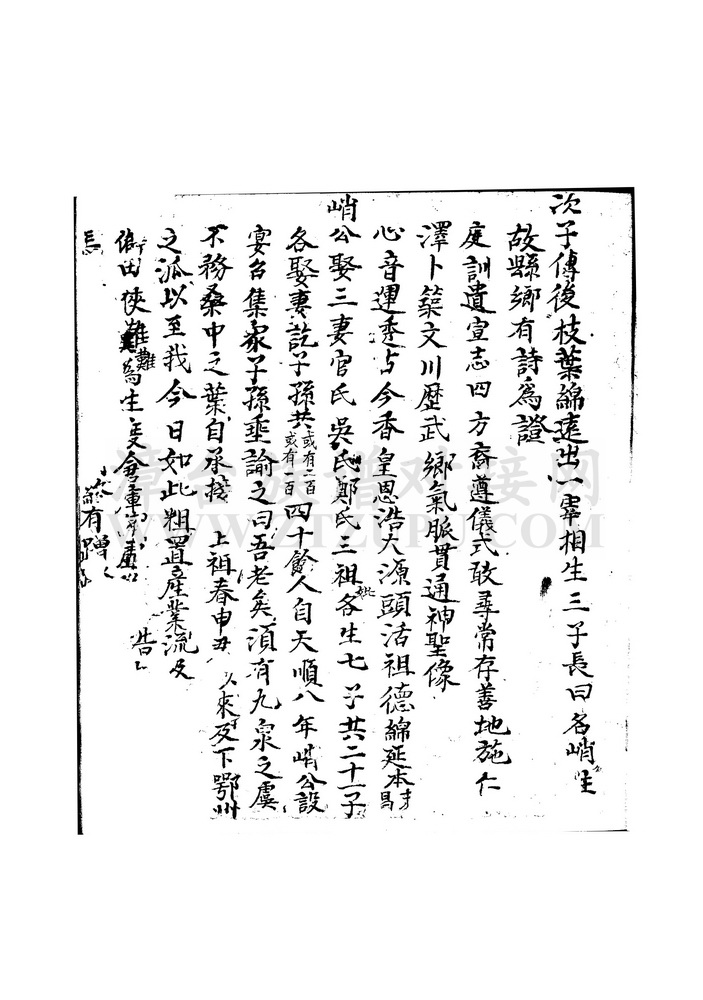 次子傳後枝葉綿遠出一宰相生三子長曰名峭生
故縣鄉有詩為證
庭訓遺宣志四方裔遵儀式敢尋常存善地施仁
澤卜築文川歷武鄉氣脈貫通神聖像
心音運透占今香皇恩浩大源頭活祖德綿延本才昌
峭公娶三妻官氏吳氏鄭氏三祖妣各生七子共二十一子
各娶妻訖子孫共或有二百或有一百四十餘人自天順八年峭公設
宴召集家子孫垂諭之曰吾老矣須有九泉之虞
不務桑中之葉自承接上祖春申 以來及下鄂州
之派以至我今日如此粗置產業流及
田俠難難為生 倉庫
有
告
焉